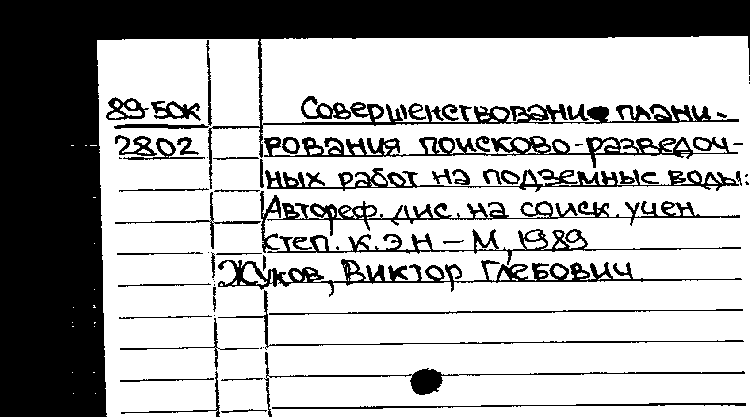 89-50К Совершенствовани● плани-
2802 рования поисково-разведоч-
ных работ на подземные воды:
Автореф. дис. на соиск. учен.
степ. к.э.н – М, 1989
Жуков, Виктор Глебович